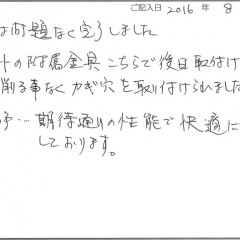 ご記入日 2016 年 8
は問題なく完了しました
トの附属金具こちらで後日取付け
削る事なくカギ穴を取付けられました
期待通りの性能で快適に
しております。